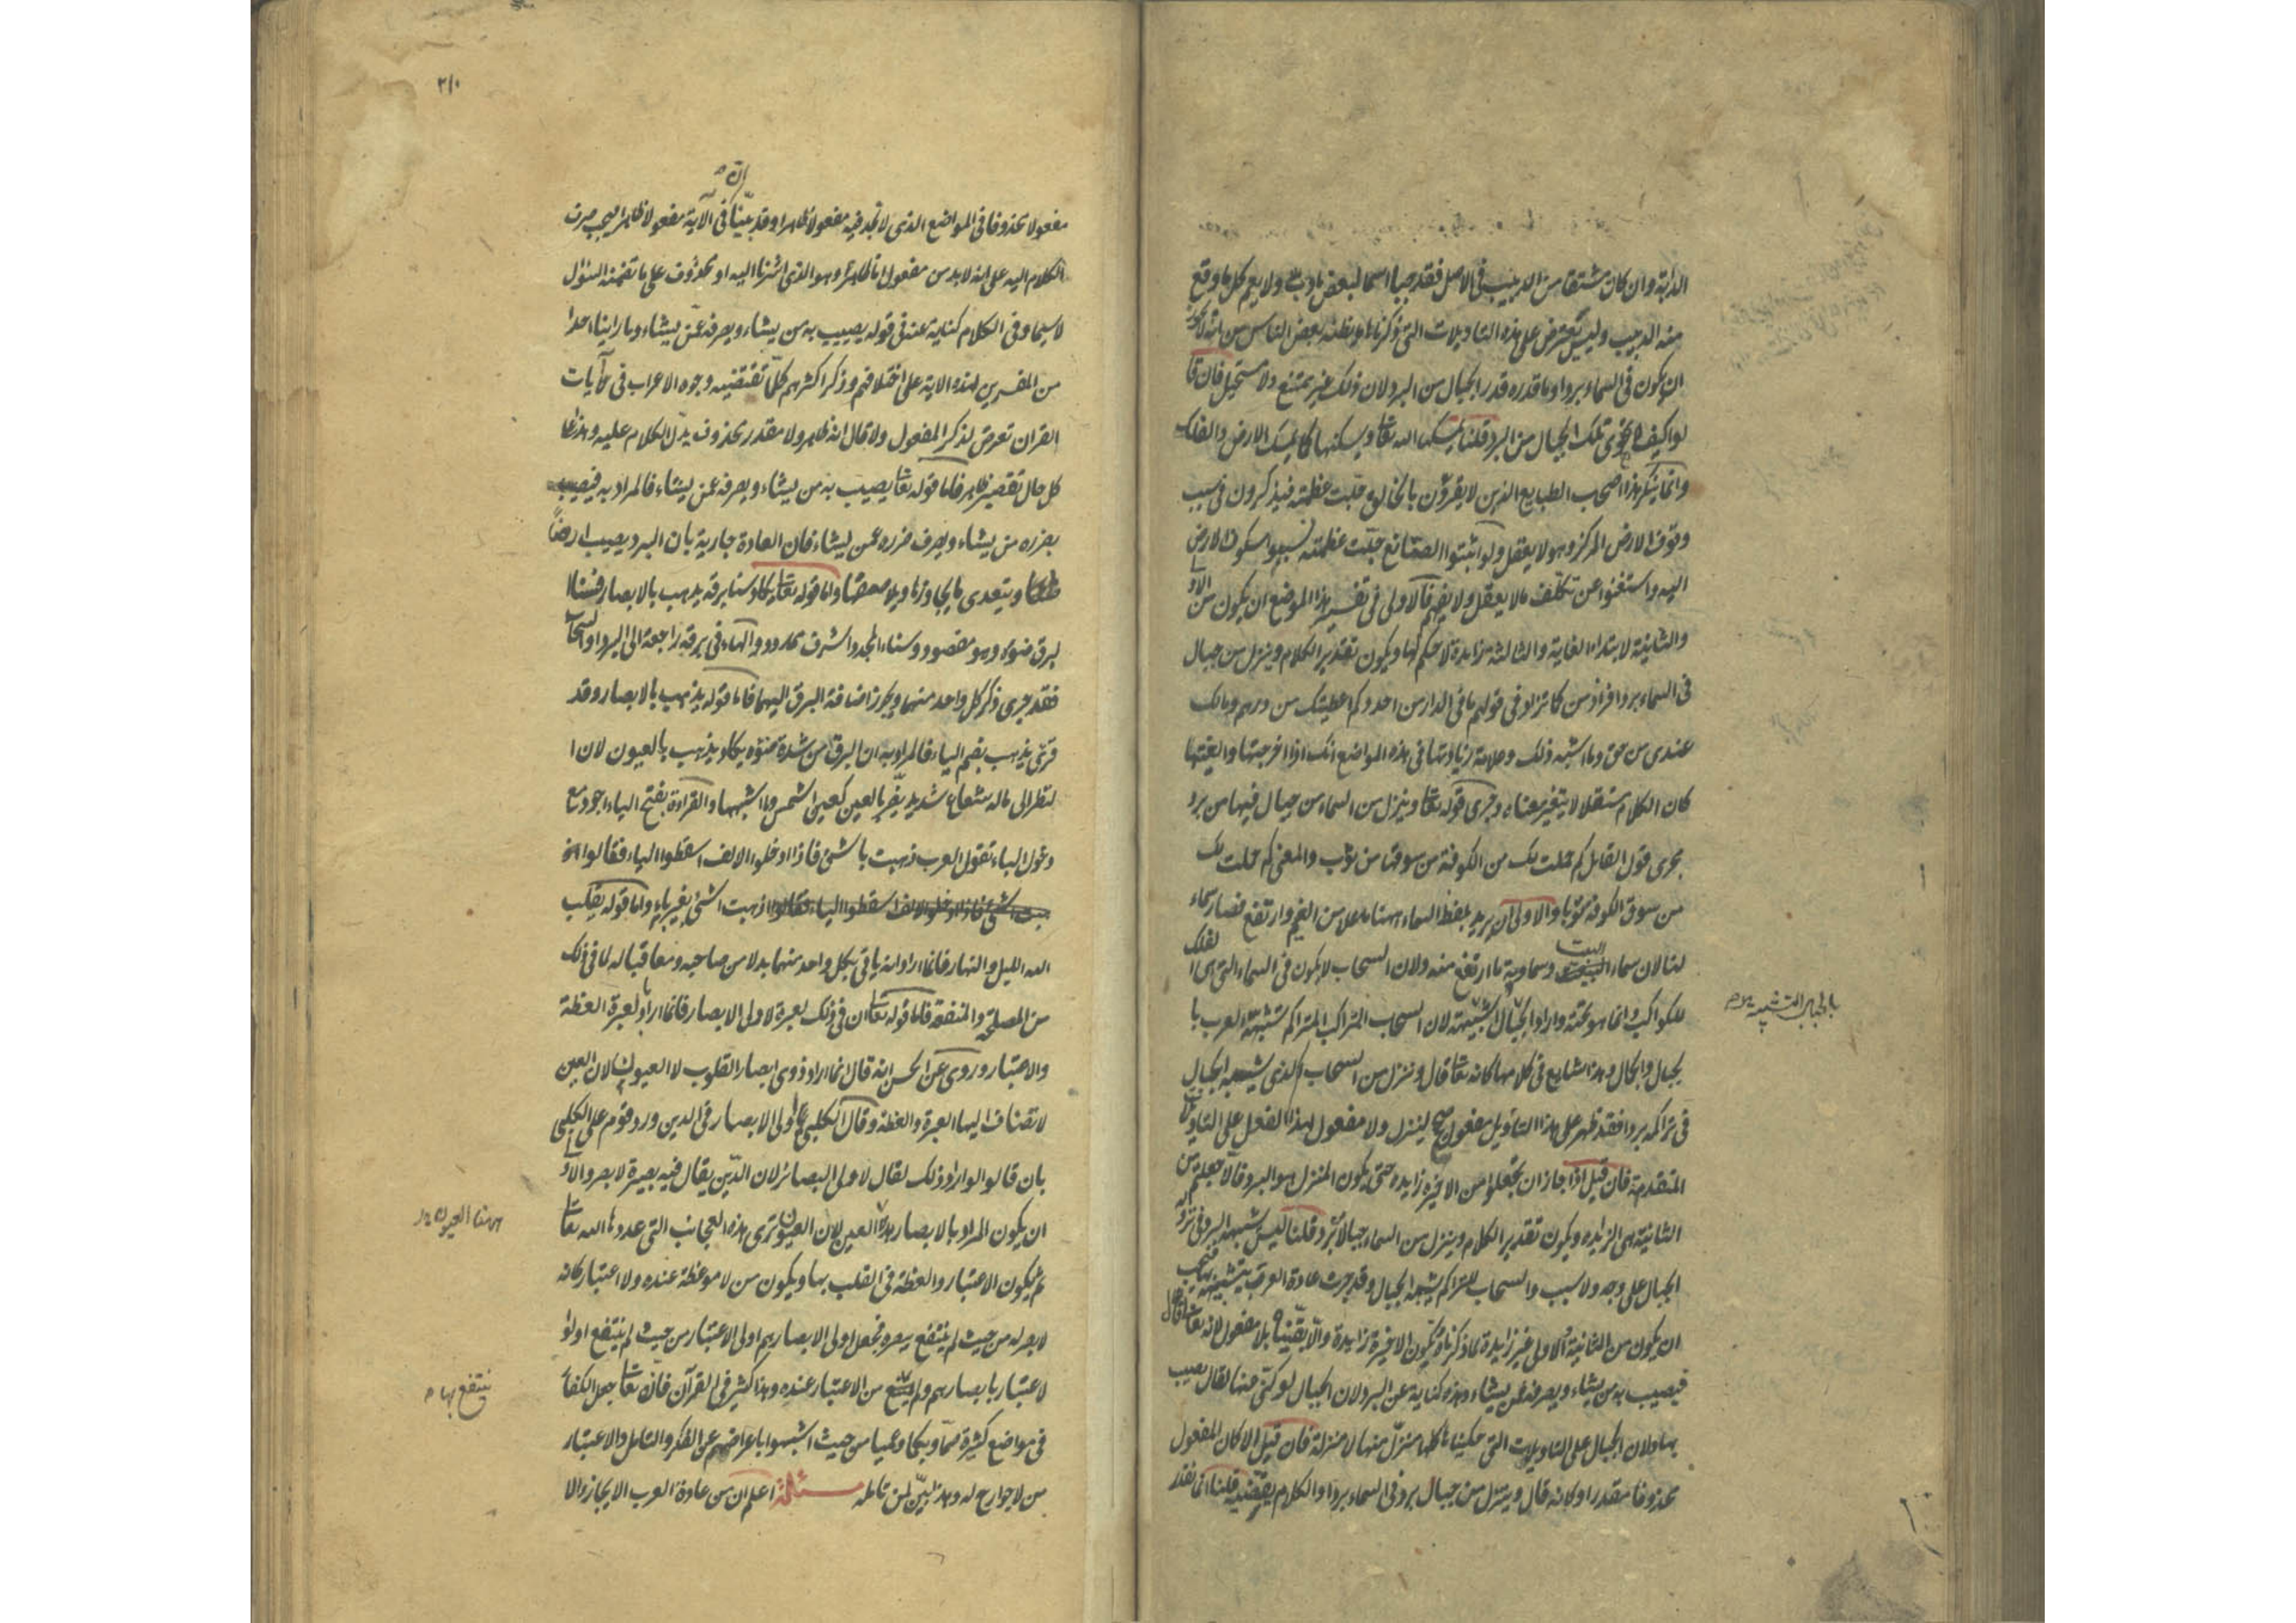 الدابة وان كان مشتقا من الدبيب في الاصل فقد صار اسما لبعض ما دب ولا يعم كل ما وقع
منه الدبيب وليس يعترض على هذه التاويلات التي ذكرناها ما يظنه بعض الناس من انه لا يجوز
ان يكون في السماء برد او ما قدره قدر الجبال من البرد لان ذلك غير ممتنع ولا مستحيل فان قا
لوا كيف لا تهوى تلك الجبال من البرد قلنا يمسكها الله تعا ويسكنها كما يمسك الارض والفلك
وانما ينكر هذا اصحاب الطبايع الذين لا يقرون بالخالق جلت عظمته فيذكرون في سبب
وقوف الارض المركز وهو لا يعقل ولو اثبتوا الصانع جلت عظمته نسبوا سكون الارض
اليه واستغنوا عن تكلف ما لا يعقل ولا يفهم فالاولى في تفسير هذا الموضع ان يكون من الاو
والثانية لابتداء الغاية والثالثة زايدة لا حكم لها ويكون تقدير الكلام وينزل من جبال
في السماء بردا فزاد من كما تزاد في قولهم ما في الدار من احد وكم اعطيتك من درهم ومالك
عندي من حق وما اشبه ذلك وعلامة زيادتها في هذه المواضع انك اذا اخرجتها والغيتها
كان الكلام مستقلا لا يتغير معناه وجرى قوله تعا وينزل من السماء من جبال فيها من برد
مجرى قول القايل كم حملت لك من الكوفة من سوقها من ثوب والمعنى كم حملت لك
من سوق الكوفة ثوبا والاولى ان يريد بلفظ السماء ههنا ما علا من الغيم وارتفع فصار سماء
لنا لان سماء البيت وسماوية ما ارتفع منه ولان السحاب لا يكون في السماء التي هي الفلك
للكواكب وانما هو تحته واراد بالجبال التشبيه لان السحاب المتراكب المتراكم تشبهه العرب با
بالجبال التشبيه
لجبال والجمال وهذا شايع في كلامها كانه تعا قال وننزل من السحاب الذي يشبه الجبال
في تراكمه بردا فقد ظهر على هذا التاويل مفعول صحيح لينزل ولا مفعول لهذا الفعل على التاويلات
المتقدمة فان قيل اذا جاز ان تجعلوا من الاخيرة زايدة حتى يكون المنزل هو البرد فالا جعلتم من
الثانية هي الزايدة ويكون تقدير الكلام وينزل من السماء جبالا برد قلنا ليس يشبه البرد في نزوله
الجبال على وجه ولا سبب والسحاب المتراكم يشبه الجبال وقد جرت عادة العرب بتشبيهه بها فيجب
ان يكون من الثانية والاولى غير زايدة لما ذكرنا وتكون الاخيرة زايدة والا بقينا بلا مفعول لانه تعا قال
فيصيب به من يشاء ويصرفه عمن يشاء وهذه كناية عن البرد لان الجبال لو كنى عنها لقال يصيب
بها ولان الجبال على التاويلات التي حكيناها كلها منزل منها لا منزلة فان قيل الا كان المفعول
محذوفا مقدرا ولانه قال وينزل من جبال برد في السماء بردا والكلام يقتضيه قلنا انما نقدر
٢١٠
مفعولا محذوفا في المواضع الذي لا نجد فيه مفعولا ظاهرا وقد بينا ان في الاية مفعولا ظاهرا فيجب صرف
الكلام اليه على انه لابد من مفعول اما ظاهر وهو الذي اشرنا اليه او محذوف على ما تضمنه السئول
لا سيما وفي الكلام كناية عنه في قوله يصيب به من يشاء ويصرفه عمن يشاء وما راينا احدا
من المفسرين لهذه الاية على اختلافهم وذكر اكثرهم كلما تقتضيه وجوه الاعراب في آيات
القران تعرض لذكر المفعول ولا قال انه ظاهر ولا مقدر محذوف يدل الكلام عليه وهذا على
كل حال تقصير ظاهر فاما قوله تعا يصيب به من يشاء ويصرفه عمن يشاء فالمراد به فيصيب
بضرره من يشاء ويصرف ضرره عمن يشاء فان العادة جارية بان البرد يصيب ارضا
ويتعدى ما يجاورها ويلاصقها واما قوله تعا يكاد سنا برقه يذهب بالابصار فسنا ا
لبرق ضوئه وهو مقصور وسناء المجد والشرف ممدود والهاء في برقه راجعة الى البرد او السحاب
فقد جرى ذكر كل واحد منهما ويجوز اضافة البرق اليهما فاما قوله يذهب بالابصار وقد
قرئ يذهب بضم الياء فالمراد به ان البرق من شدة ضوئه يكاد يذهب بالعيون لان ا
لنظر الى ماله شعاع شديد يضر بالعين كعين الشمس وما اشبهها والقراءة بفتح الياء اجود مع
دخول الباء تقول العرب ذهبت بالشئ فاذا ادخلوا الالف اسقطوا الباء فقالوا اذ
هبت الشئ فاذا ادخلوا الالف اسقطوا الباء فقالوا اذهبت الشئ بغير باء واما قوله يقلب
الله الليل والنهار فانما اراد انه ياتي بكل واحد منهما بدلا من صاحبه ومعاقبا له لما في ذلك
من المصلحة والمنفعة فاما قوله تعا ان في ذلك لعبرة لاولى الابصار فانما اراد بالعبرة العظة
والاعتبار وروى عن الحسن انه قال انما اراد ذوى ابصار القلوب لا العيون لان العين
لا تضاف اليها العبرة والعظة وقال الكلبي لاولى الابصار في الدين ورد قوم على الكلبي
بان قالوا لو اراد ذلك لقال لاولى البصائر لان الدين يقال فيه بصيرة لا بصر والاو
ان يكون المراد بالابصار ههنا العيون لان العيون ترى هذه العجائب التي عددها الله تعا
ههنا العيون
ثم يكون الاعتبار والعظة في القلب بها ويكون من لا موعظة عنده ولا اعتبار كانه
لا بصر له من حيث لم ينتفع ببصره فجعل اولى الابصار هم اولى الاعتبار من حيث لم ينتفع اولو ا
لاعتبار بابصارهم ولم ينتفع من الاعتبار عنده وهذا كثير في القرآن فانه تعا جعل الكفار
ينتفع بها
في مواضع كثيرة صما وبكما وعميا من حيث اشبهوا باعراضهم عن الفكر والتامل والاعتبار
من لا جوارح له وهذا بين لمن تامله مسئلة اعلم ان من عادة العرب الايجاز والا